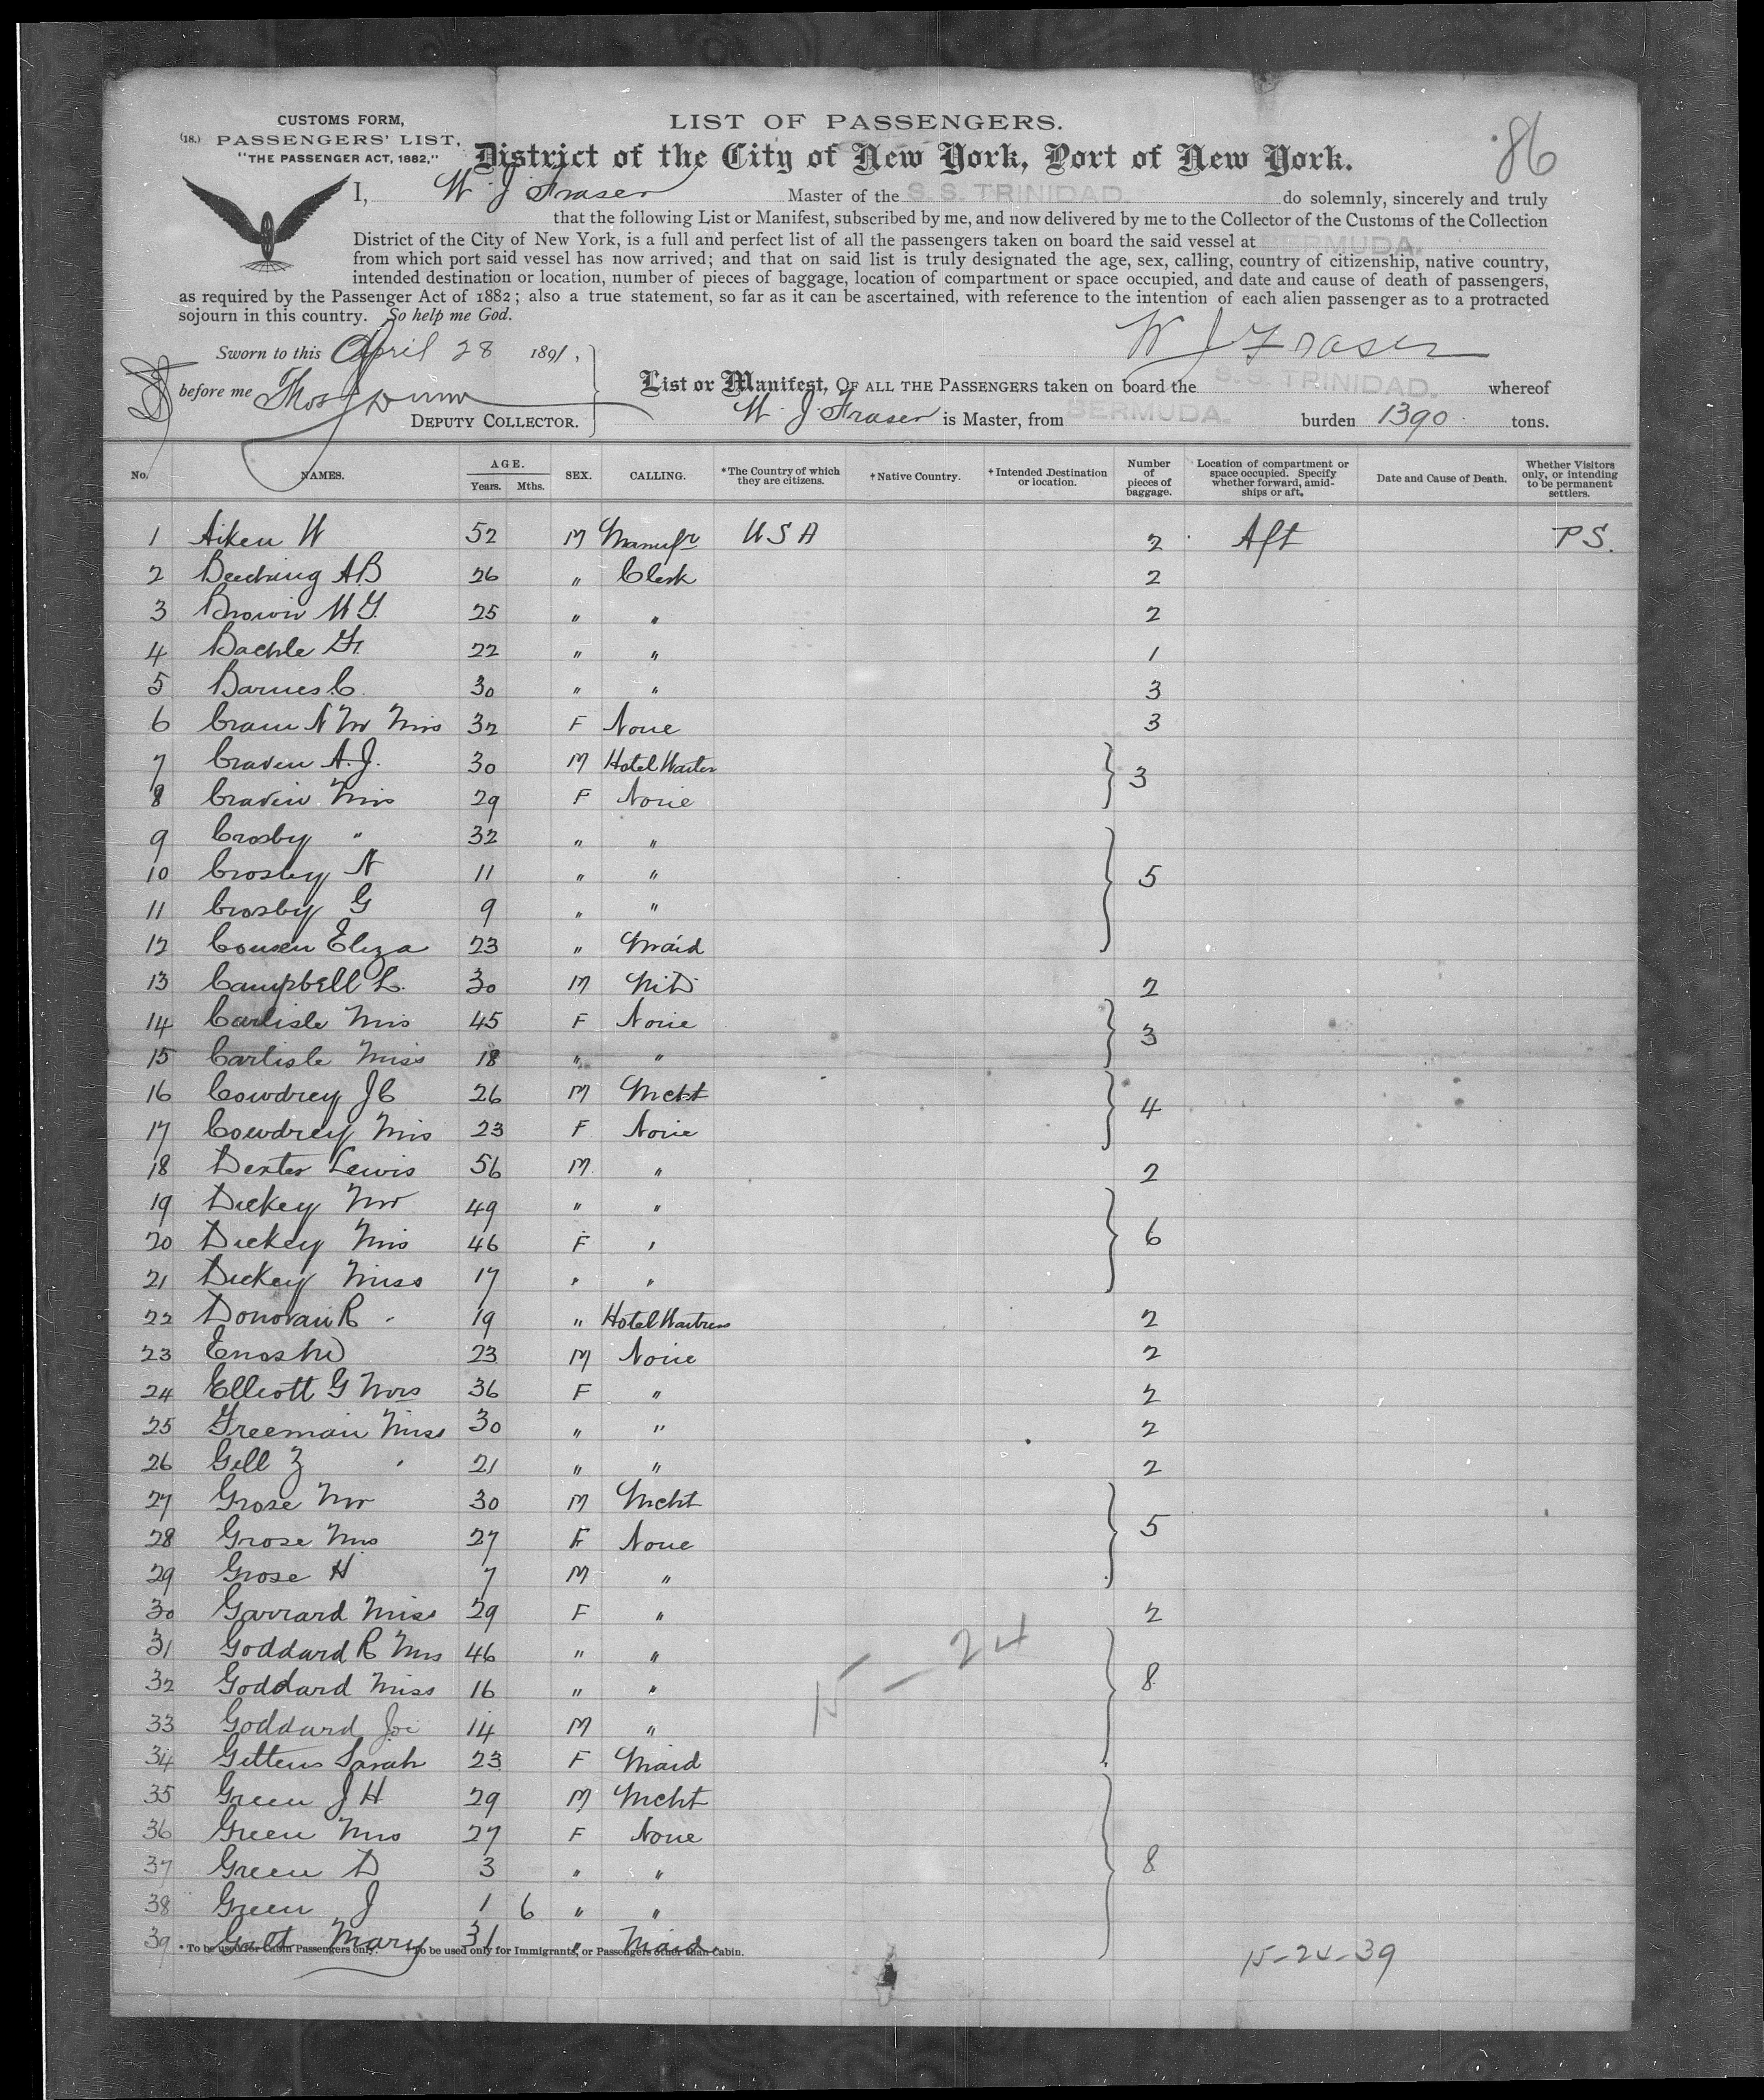 CUSTOMS FORM,
(18.) PASSENGERS' LIST,
"THE PASSENGER ACT, 1882,"
LIST OF PASSENGERS.
86
District of the City of New York, Port of New York.
I, W J Fraser Master of the S. S. TRINIDAD. do solemnly, sincerely and truly
that the following List or Manifest, subscribed by me, and now delivered by me to the Collector of the Customs of the Collection
District of the City of New York, is a full and perfect list of all the passengers taken on board the said vessel at BERMUDA.
from which port said vessel has now arrived; and that on said list is truly designated the age, sex, calling, country of citizenship, native country,
intended destination or location, number of pieces of baggage, location of compartment or space occupied, and date and cause of death of passengers,
as required by the Passenger Act of 1882; also a true statement, so far as it can be ascertained, with reference to the intention of each alien passenger as to a protracted
sojourn in this country. So help me God.
W J Fraser
Sworn to this April 28 1891,
before me Thos J Dunn
DEPUTY COLLECTOR.
List or Manifest, OF ALL THE PASSENGERS taken on board the S. S. TRINIDAD. whereof
W. J. Fraser is Master, from BERMUDA. burden 1390 tons.
No. NAMES. AGE. Years. Mths. SEX. CALLING. *The Country of which they are citizens. †Native Country. †Intended Destination or location. Number of pieces of baggage. Location of compartment or space occupied. Specify whether forward, amidships or aft. Date and Cause of Death. Whether Visitors only, or intending to be permanent settlers.
1 Aiken W 52 M Manufr USA 2 Aft P S.
2 Beeching A.B 26 " Clerk 2
3 Brown W G. 25 " " 2
4 Bachle Fr. 22 " " 1
5 Barnes C. 30 " " 3
6 Cram N M Mrs 32 F None 3
7 Craven A. J. 30 M Hotel Waiter } 3
8 Craven Mrs 29 F None
9 Crosby " 32 " "
10 Crosby N 11 " " } 5
11 Crosby G 9 " "
12 Eliza 23 " Maid
13 Campbell L. 30 M 2
14 Carlisle Mrs 45 F None } 3
15 Carlisle Miss 18 " "
16 Cowdrey J C 26 M Mcht } 4
17 Cowdrey Mrs 23 F None
18 Dexter Lewis 56 M. " 2
19 Dickey Mr 49 " "
20 Dickey Mrs 46 F " } 6
21 Dickey Miss 17 " "
22 Donovan R 19 " Hotel Waitress 2
23 23 M None 2
24 Elliott G Mrs 36 F " 2
25 Freeman Miss 30 " " 2
26 Gell Z 21 " " 2
27 Grose Mr 30 M Mcht
28 Grose Mrs 27 F None } 5
29 Grose H 7 M "
30 Garrard Miss 29 F " 2
31 Goddard R Mrs 46 " "
32 Goddard Miss 16 " " } 8
33 Goddard Joe 14 M "
34 Gittens Sarah 23 F Maid
35 Green J H 29 M Mcht
36 Green Mrs 27 F None
37 Green D 3 " " } 8
38 Green J 1 6 " "
39 Galt Mary 31 " Maid
15 - 24
* To be used for Cabin Passengers only. † To be used only for Immigrants, or Passengers other than Cabin.
15-24-39